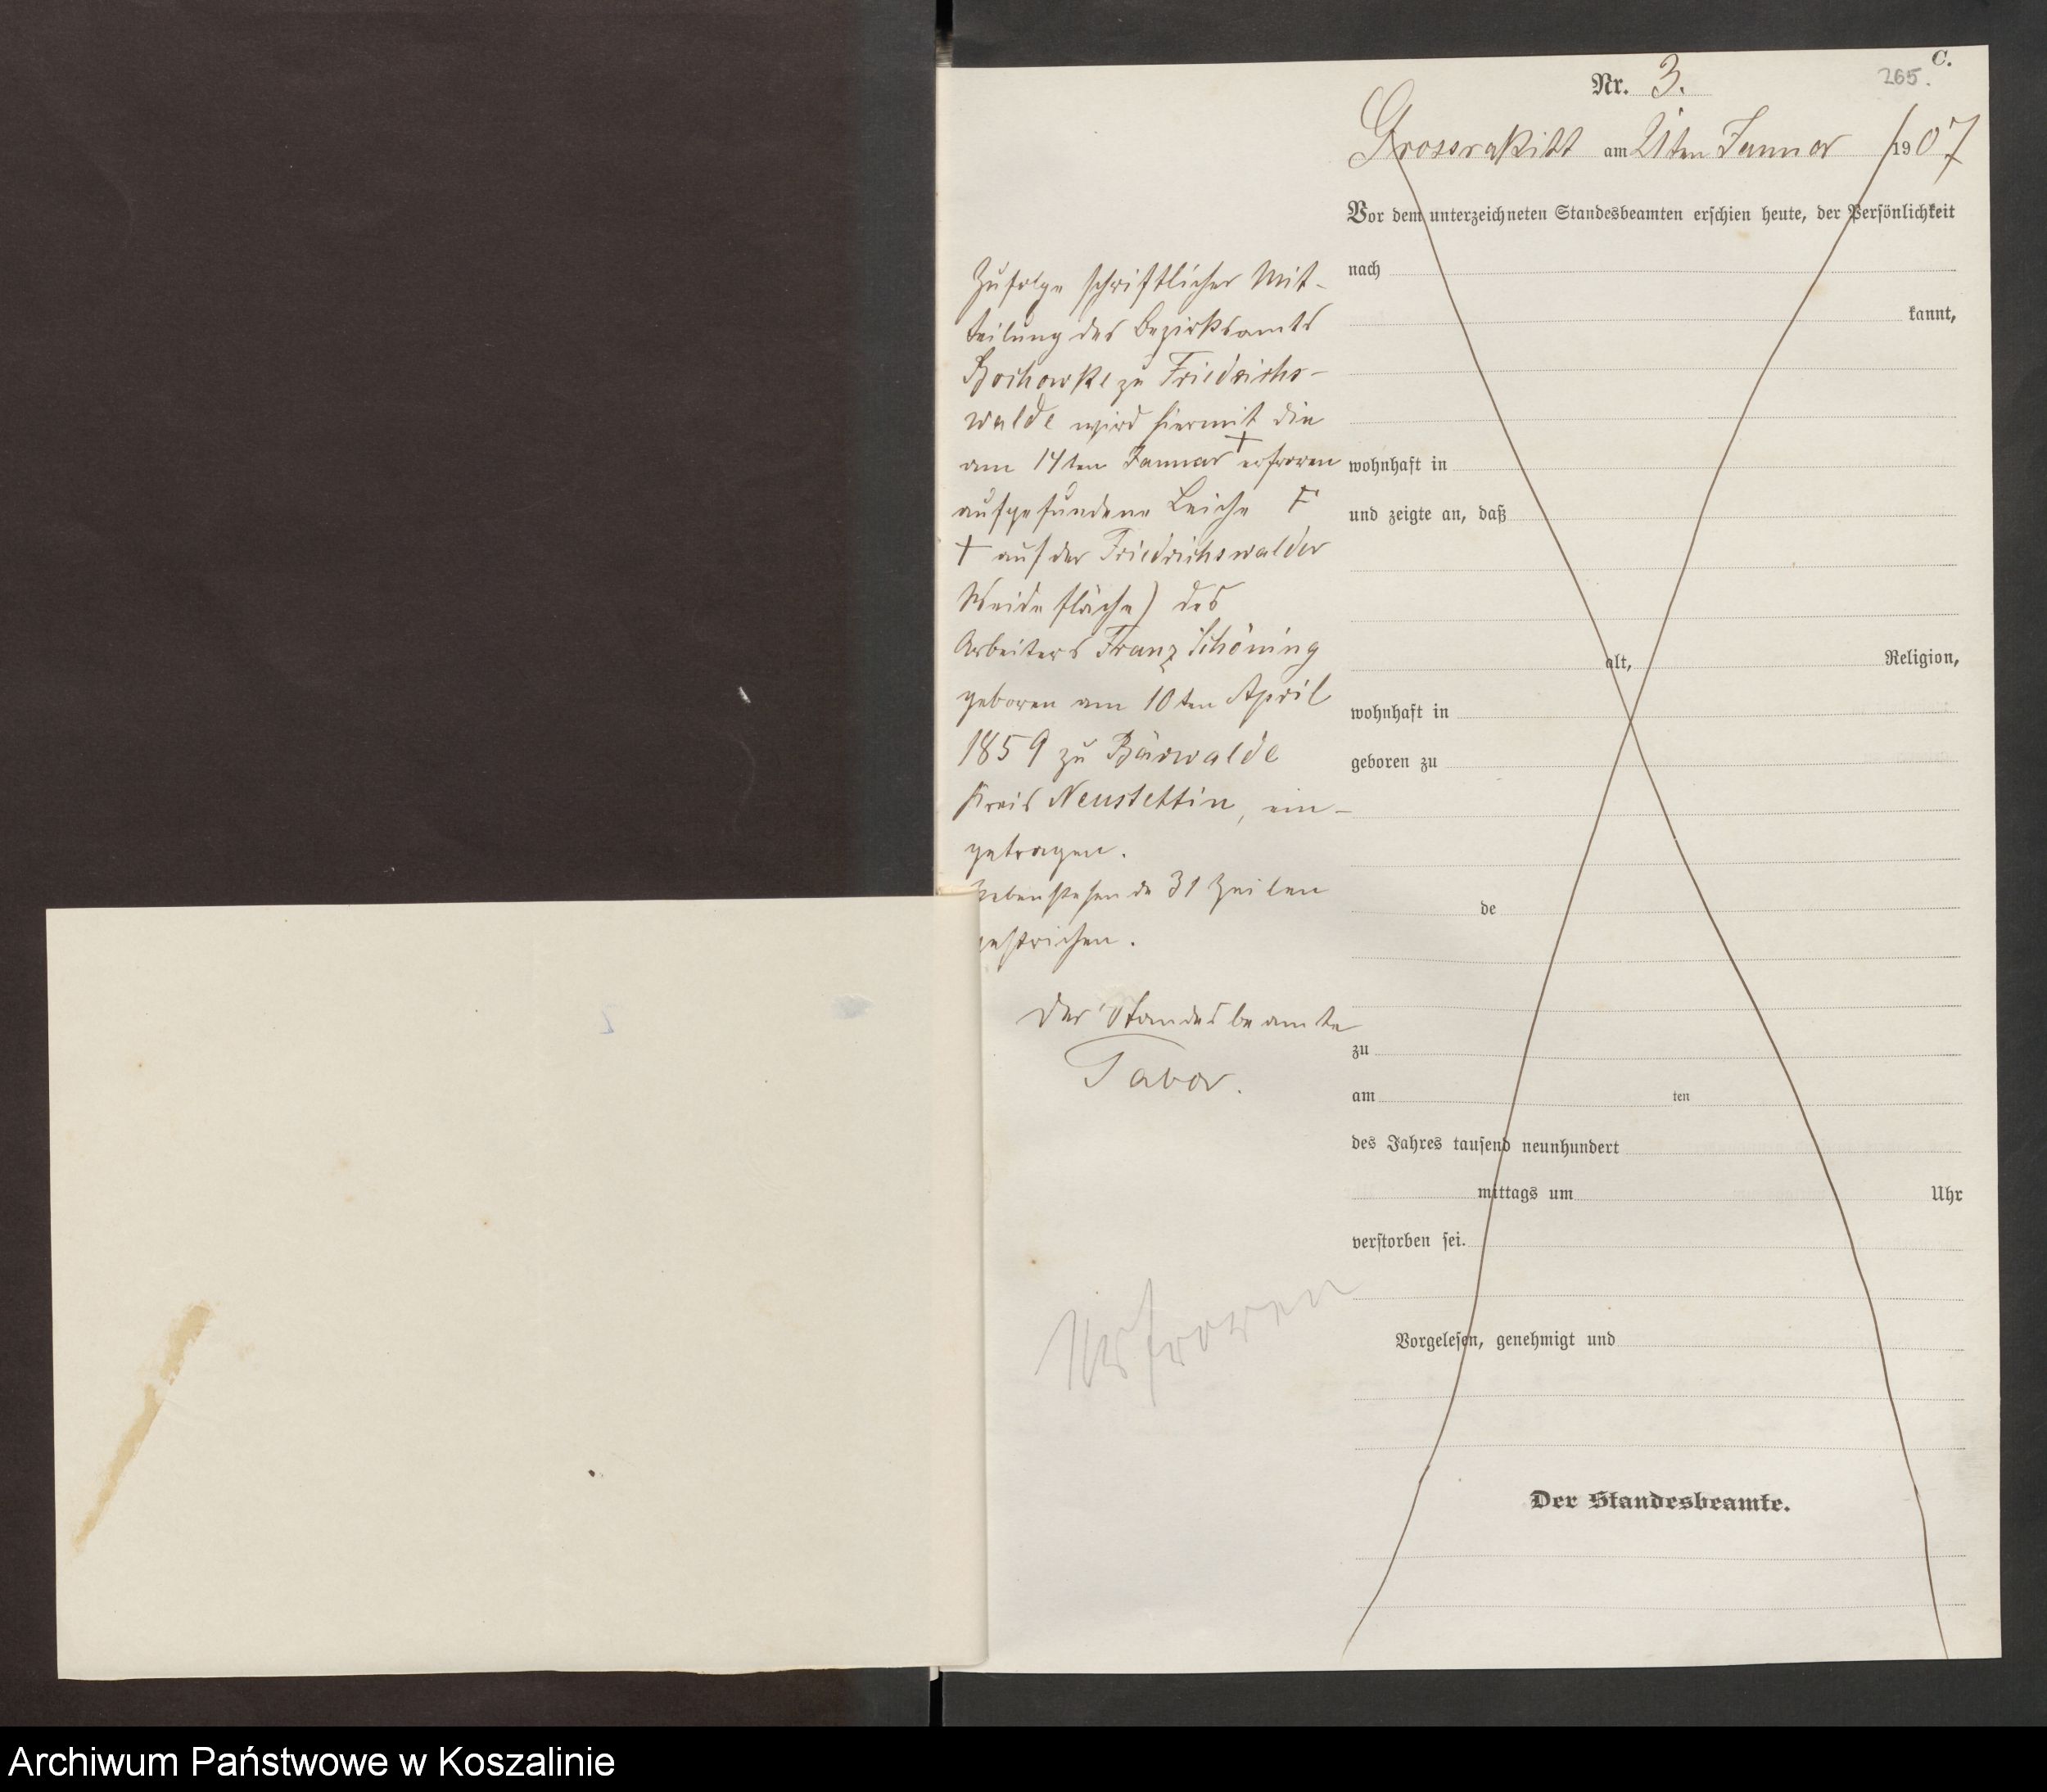 C.
265.
Nr. 3.
Grossrakitt am 21ten Januar 1907
Vor dem unterzeichneten Standesbeamten erschien heute, der Persönlichkeit
nach
kannt,
wohnhaft in
und zeigte an, daß
alt, Religion,
wohnhaft in
geboren zu
de
zu
am ten
des Jahres tausend neunhundert
mittags um Uhr
verstorben sei.
Vorgelesen, genehmigt und
Der Standesbeamte.
Zufolge schriftlicher Mit-
teilung des Bezirksamts
Bochowke zu Friedrichs-
walde wird hiermit die
am 14ten Januar + erfroren
aufgefundene Leiche F
+ auf der Friedrichswalder
Weidefläche) des
Arbeiters Franz Schöning
geboren am 10ten April
1859 zu Bärwalde
Kreis Neustettin, ein-
getragen.
Nebenstehende 31 Zeilen
gestrichen.
Der Standesbeamte
Tabor.
Erfroren
Archiwum Państwowe w Koszalinie